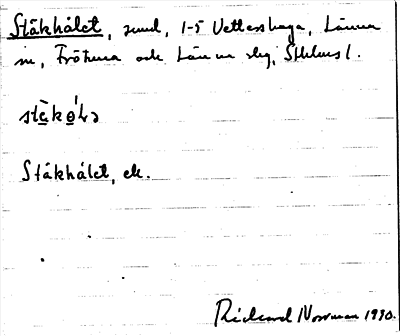 Ståkhålet, sund, 1-5 Vettershaga, Länna
sn, Frötuna och Länna slg, Sthlms l.
Ståkhålet, ek.
Rickard Norrman 1930.